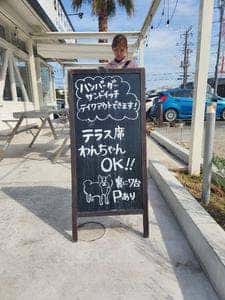 ハンバーガー
サンドイッチ
テイクアウトできます!
テラス席
わんちゃん
OK!!
裏に7台
Pあり